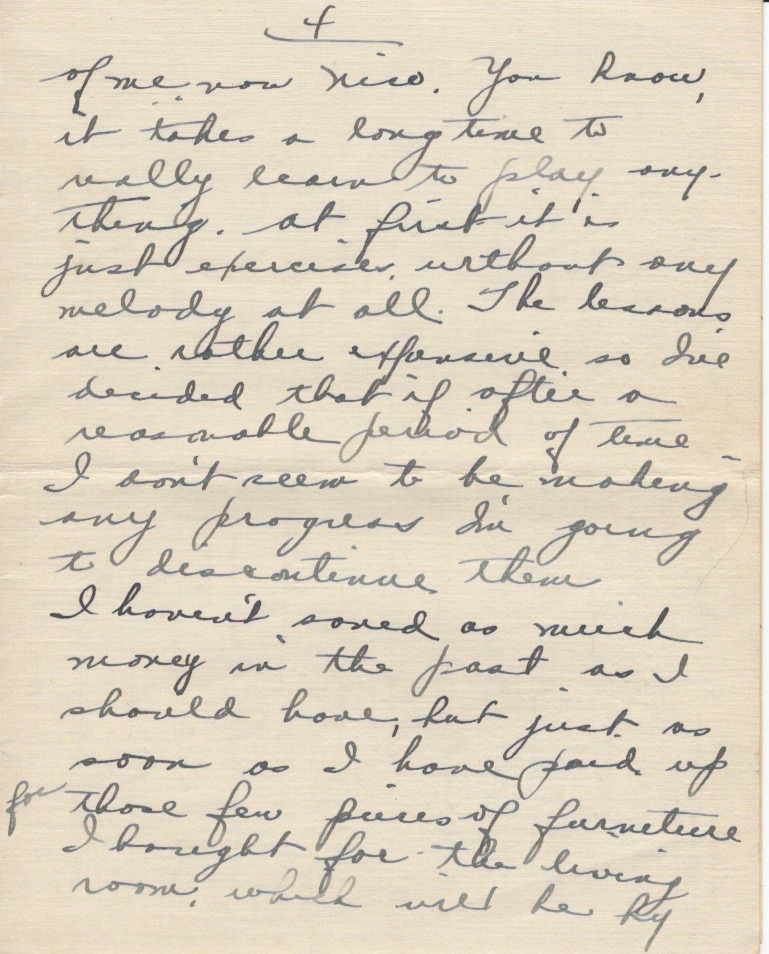 4
of me now Nico. You know,
it takes a long time to
really learn to play any-
thing. at first it is
just exercises, without any
melody at all. The lessons
are rather expensive so I've
decided that if after a
reasonable period of time
I don't seem to be making
any progress I'm going
to discontinue them
I haven't saved as much
money in the past as I
should have, but just as
soon as I have paid up
for those few pieces of furniture
I bought for the living
room, which will be by